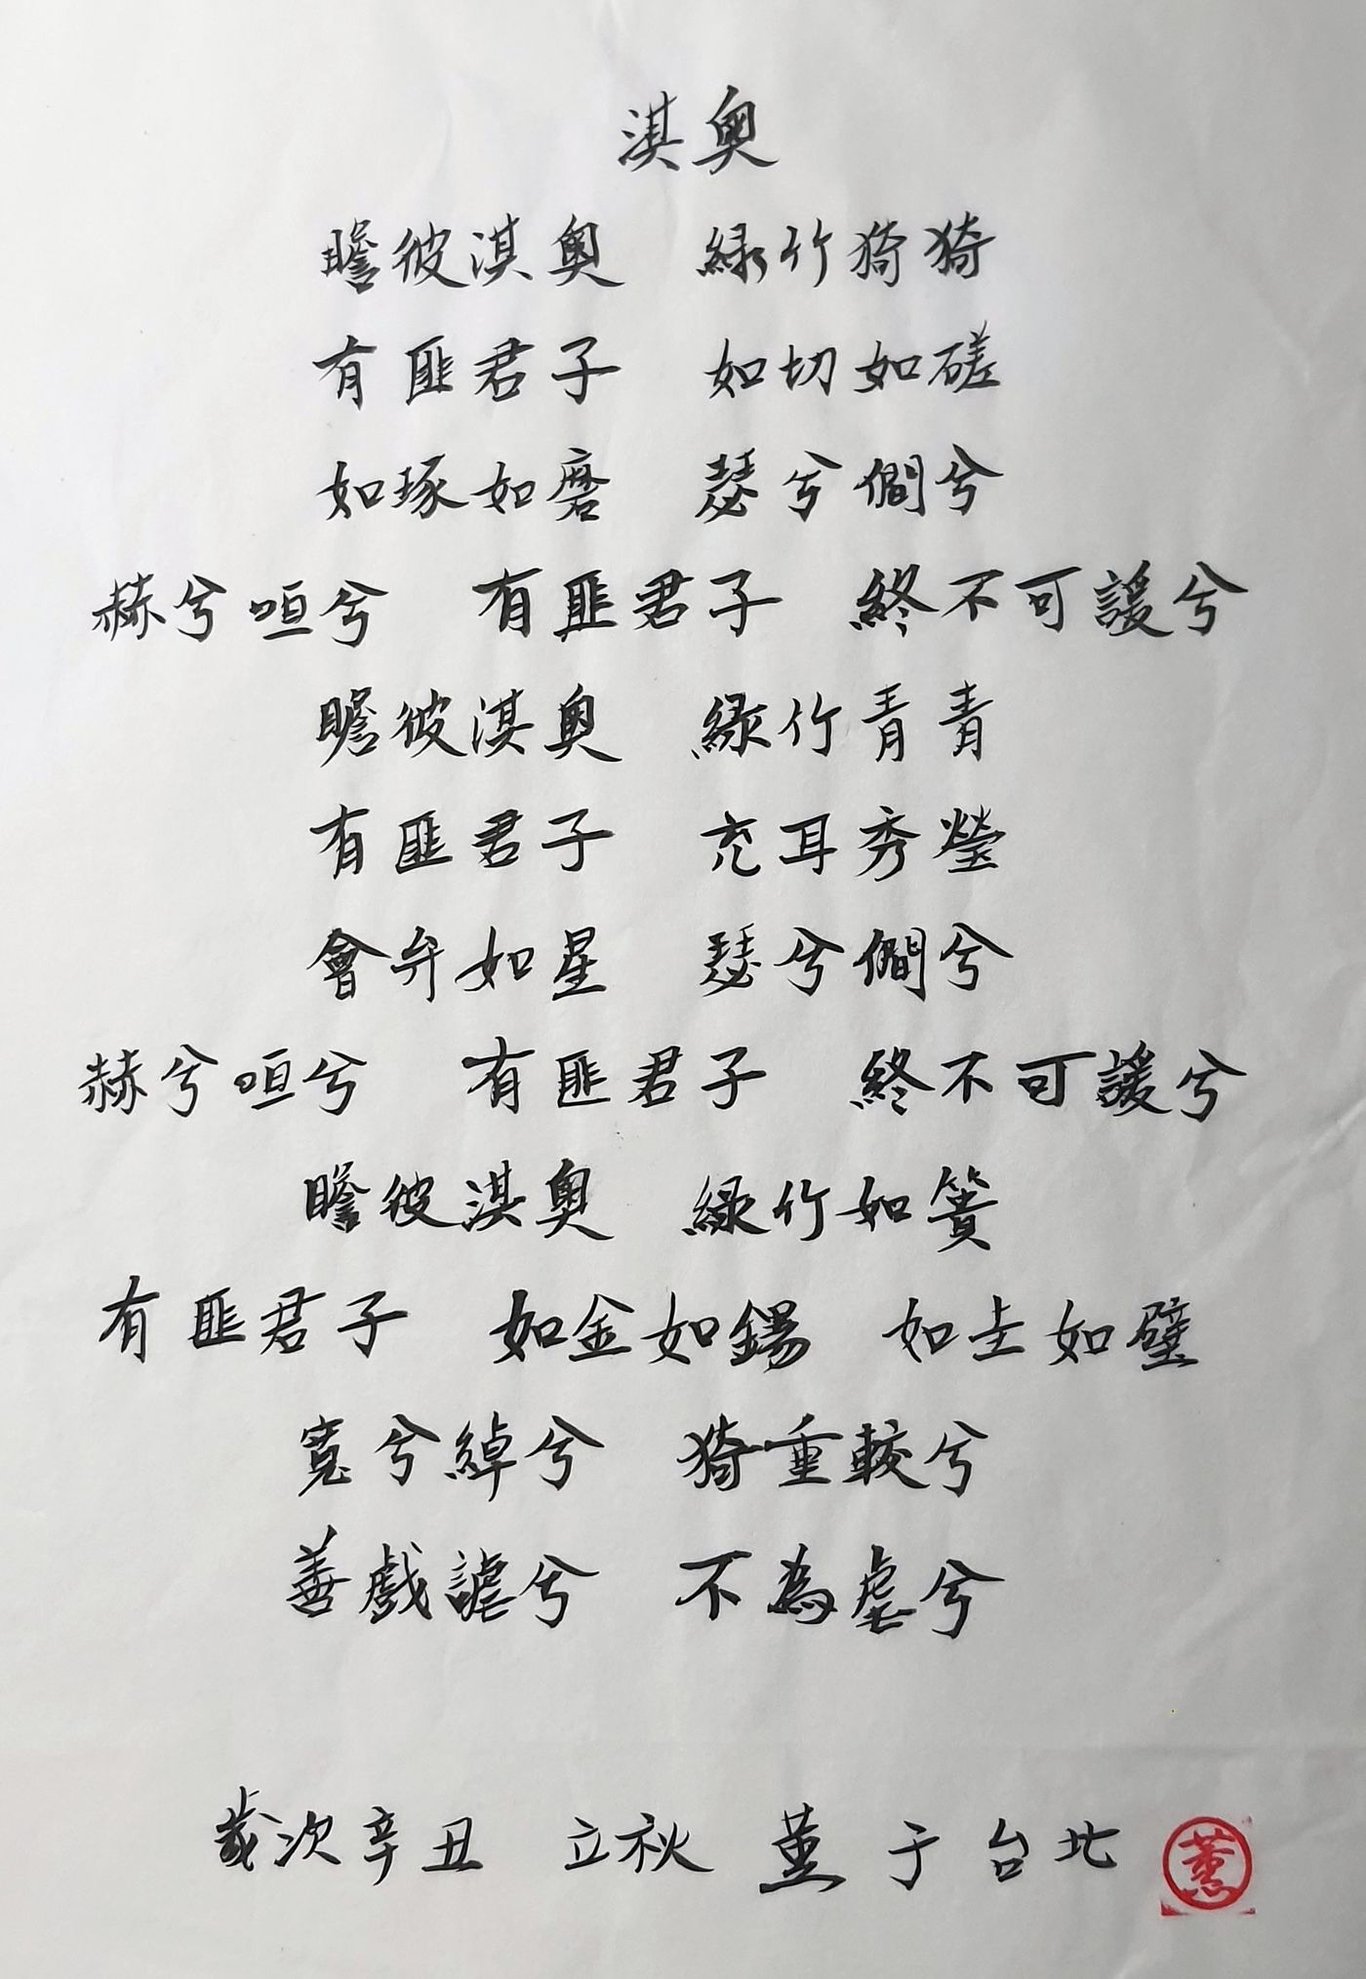 淇奧
瞻彼淇奧 綠竹猗猗
有匪君子 如切如磋
如琢如磨 瑟兮僩兮
赫兮咺兮 有匪君子 終不可諼兮
瞻彼淇奧 綠竹青青
有匪君子 充耳秀瑩
會弁如星 瑟兮僩兮
赫兮咺兮 有匪君子 終不可諼兮
瞻彼淇奧 綠竹如簀
有匪君子 如金如錫 如圭如璧
寬兮綽兮 猗重較兮
善戲謔兮 不為虐兮
歲次辛丑 立秋 蕙于台北
蕙